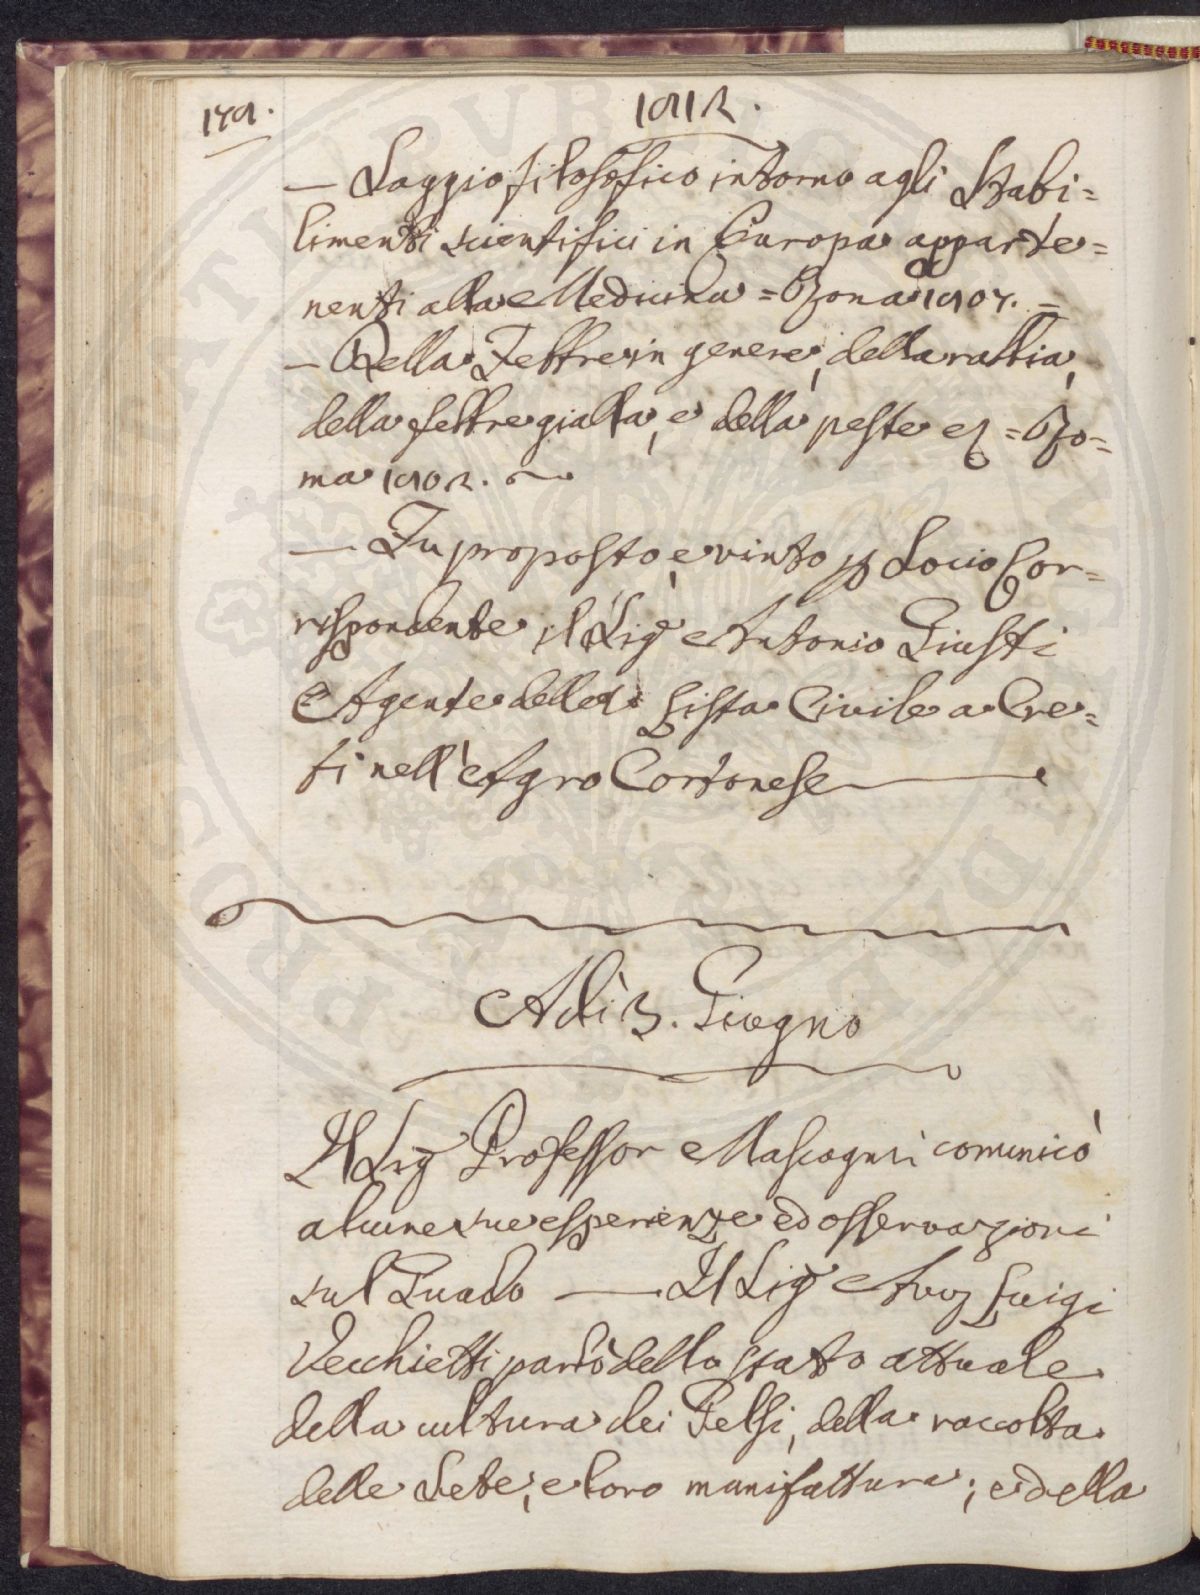 178.
1812.
— Saggio filosofico intorno agli Stabi=
limenti scientifici in Europa apparte=
nenti alla Medicina = Roma 1807. =
— Della Febbre in genere, della rabbia,
della febbre gialla, e della peste &c = Ro=
ma 1802.
— Fu proposto, e vinto p Socio Cor=
rispondente il Sig Antonio Giusti
Agente della Lista Civile a Cre=
ti nell'Agro Cortonese
Adì 3. Giugno
Il Sig Professor Mascagni comunicò
alcune sue esperienze ed osservazioni
sul Guado — Il Sig Avv Luigi
Vecchietti parlò dello stato attuale
della cultura dei Gelsi, della raccolta
delle Sete, e loro manifattura; e della